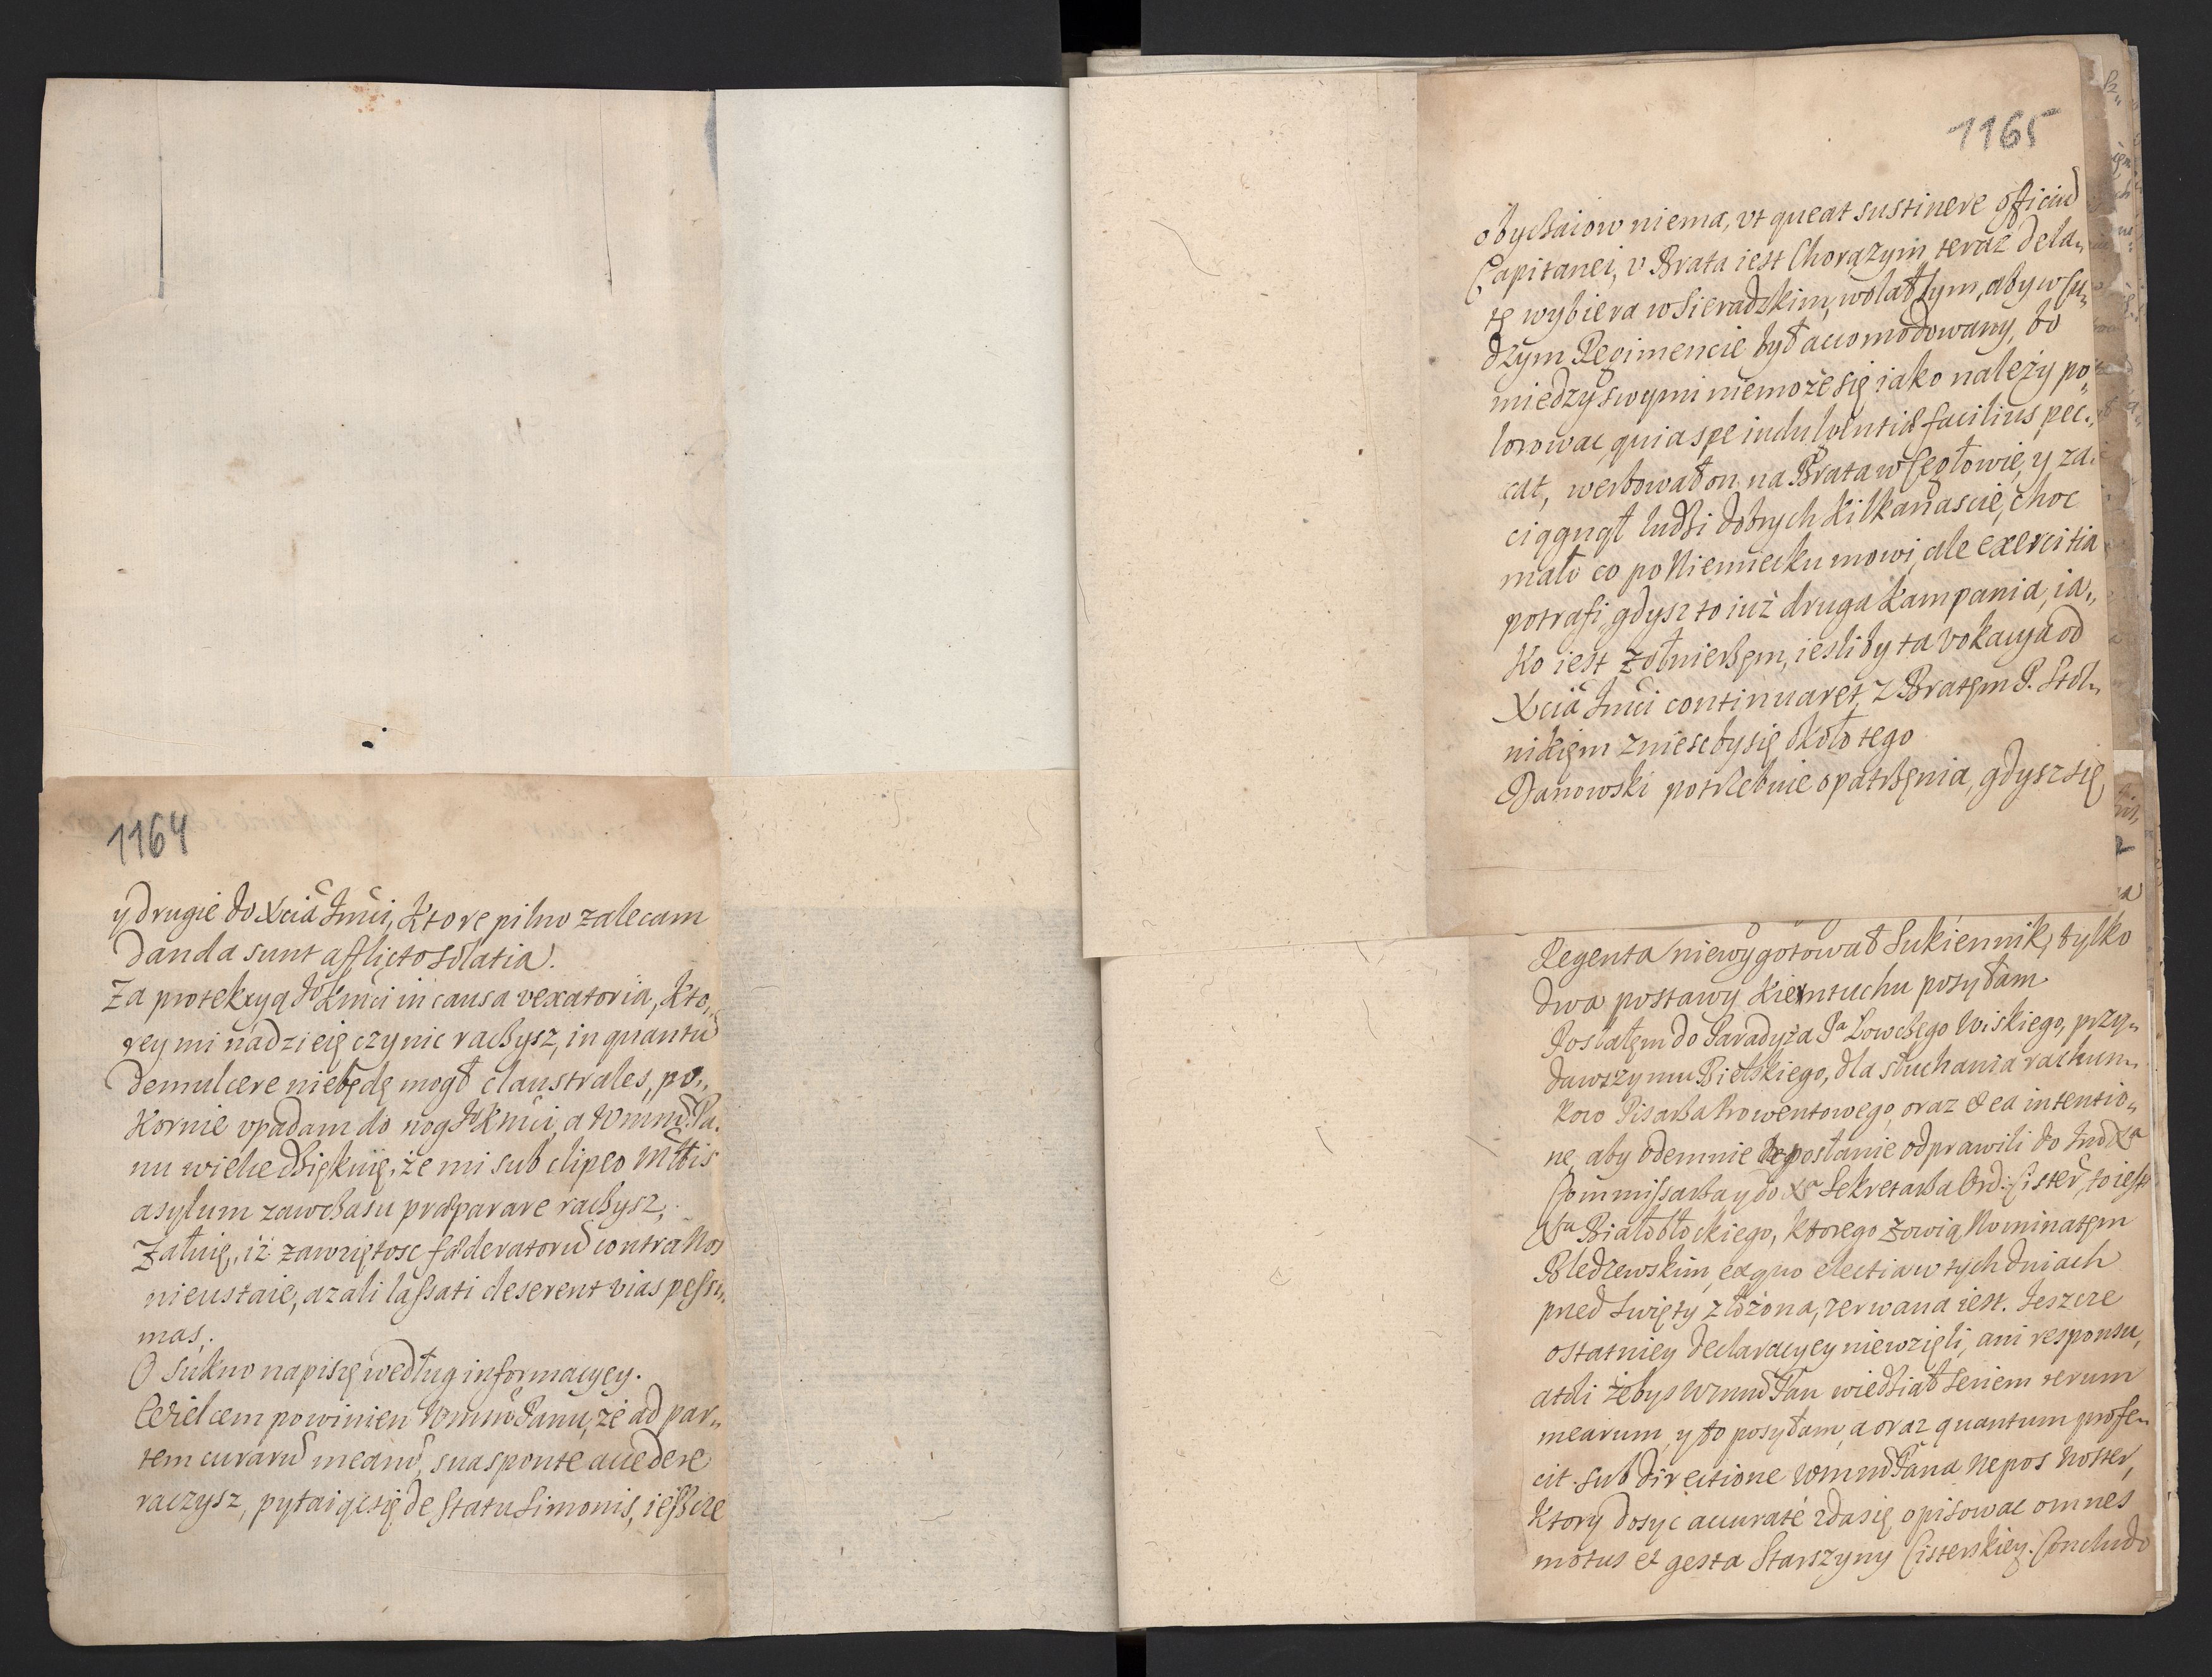 1164
y drugie do Xcia Jmci, ktore pilno zalecam
danda sunt afflicto solatia.
Za protekcyą JoKmci in causa vexatoria, kto„
rey mi nadzieię czynic raczysz, in quantu
demulcere niebędę mogł claustrales, po„
kornie vpadam do nog JoKmci, a Wmm Pa„
nu wielce dziękuię, że mi sub clipeo Mltis
asylum zawczasu præparare raczysz,
Załuię, iż zawziętosc fæderatoru contra Nos
nieustaie, azali lassati deserent vias pessi„
mas.
O Sukno napiszę według informacyey.
Wielcem powinien Wmm Panu, że ad par„
tem curaru mearu, sua sponte accedere
raczysz, pytaiąc się de statu Simonis, ieszcze
1165
obyczaiow niema, vt queat sustinere officiu
Capitanei, v Brata iest Chorązym, teraz dela„
tę wybiera w Sieradzkim, wolałbym, aby w cu„
dzym Regimencie był accomodowany, bo
miedzy swymi niemoże się iako należy po„
lorowac, quia spe indulgentiæ facilius pec„
cat, werbował on na Brata w Segłowie, y za„
ciągnął ludzi dobrych kilkanascie, choc
mało co po Niemiecku mowi, ale exercitia
potrafi, gdysz to iuż druga kampania, ia„
ko iest żołnierzem, iesliby ta vokacya od
Xcia Jmci continuaret, z Bratem P. Stol„
nikiem zniesc by się około tego
Danowski potrzebuie opatrzenia, gdysz się
Regenta niewygotował Sukiennik, tylko
dwa postawy kierntuchu posyłam
Posłałem do Paradyża Pa Łowczego Wiskiego, przy„
dawszy mu Bielskiego, dla słuchania rachun„
kow Pisarza Prowentowego, oraz & ea intentio„
ne, aby odemnie posłanie odprawili do
Commissarza y do Xa Sekretarza Ord: Cister, to iest
Xa Białobłockiego, ktorego zowią Nominatem
Bledzewskim, ex quo electia w tych dniach
przed Swięty złożona, zerwana iest. Jeszcze
ostatniey declaracyey niewzięli, ani responsu,
atoli żebys Wmm Pan wiedział seriem rerum
mearum, y to posyłam, a oraz quantum profe„
cit sub directione Wmm Pana Nepos Noster,
ktory dosyc accuraté zda się opisowac omnes
motus et gesta Starszyny Cisterskiey. Concludo